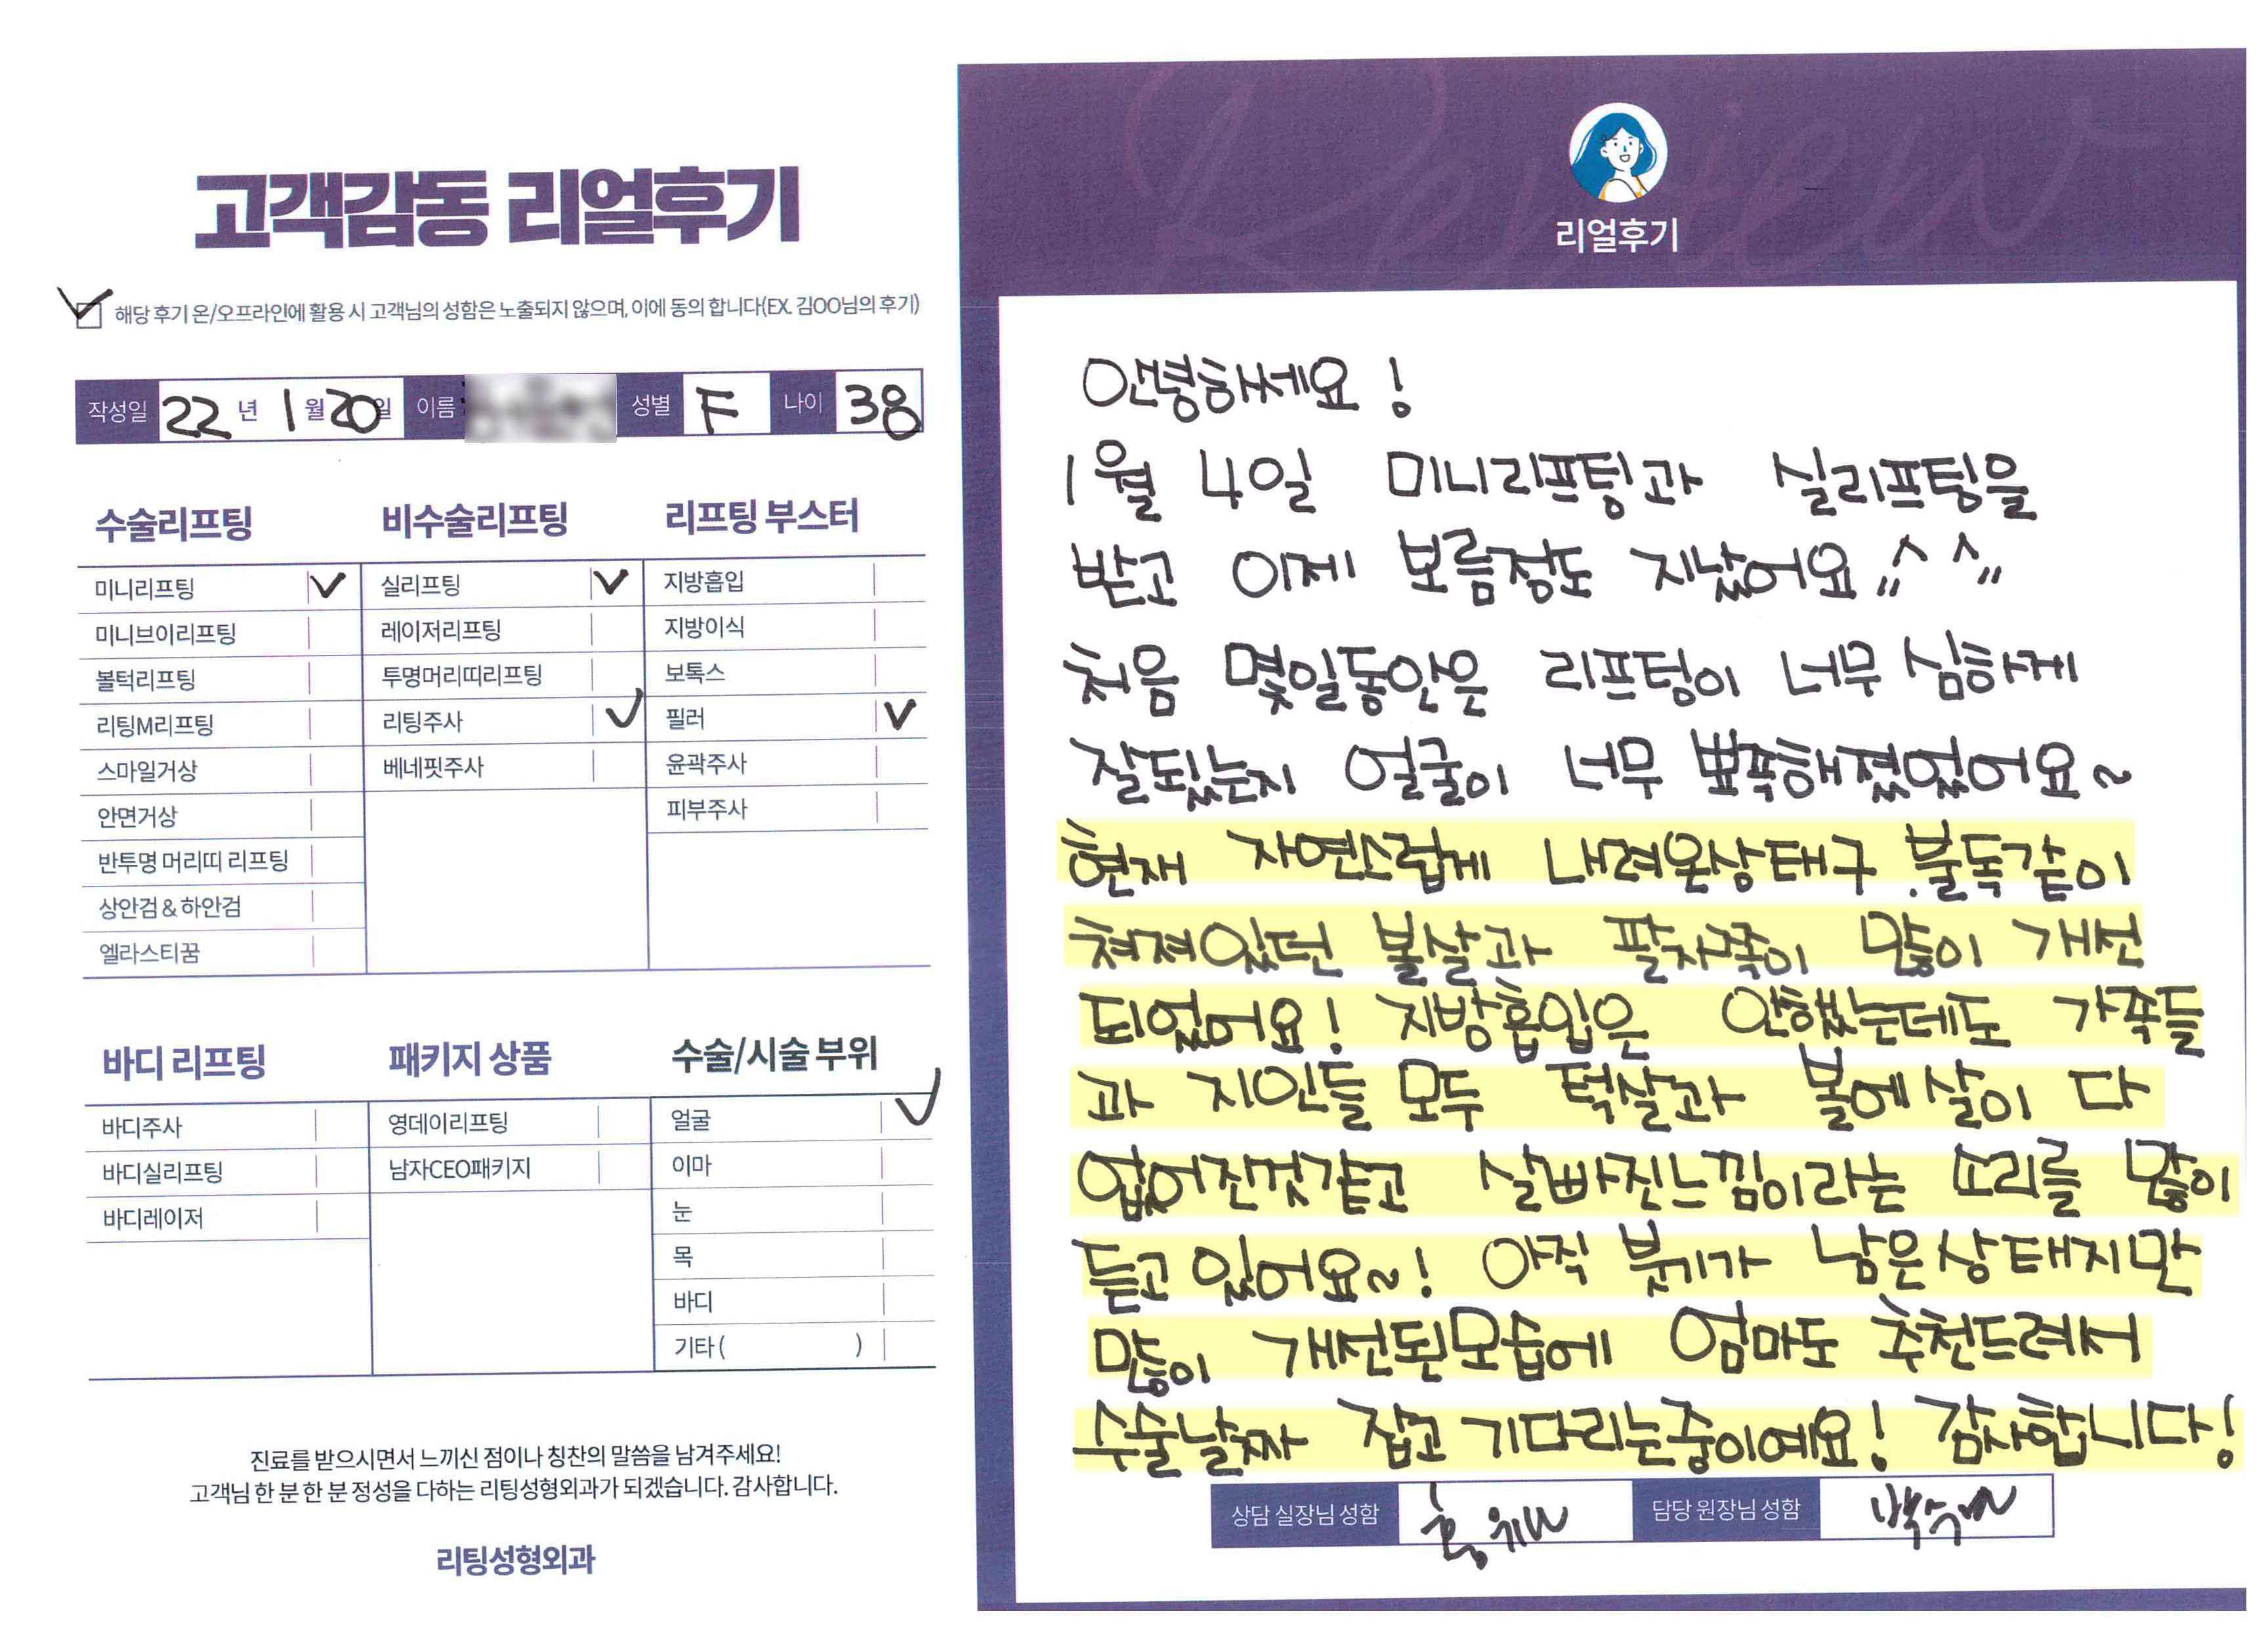 고객감동 리얼후기
해당 후기 온/오프라인에 활용 시 고객님의 성함은 노출되지 않으며, 이에 동의 합니다(EX. 김OO님의 후기)
작성일 22 년 1 월 20 일 이름 성별 F 나이 38
수술리프팅
미니리프팅 V
미니브이리프팅
볼턱리프팅
리팅M리프팅
스마일거상
안면거상
반투명 머리띠 리프팅
상안검 & 하안검
엘라스티꿈
비수술리프팅
실리프팅 V
레이저리프팅
투명머리띠리프팅
리팅주사 V
베네핏주사
리프팅 부스터
지방흡입
지방이식
보톡스
필러 V
윤곽주사
피부주사
바디 리프팅
바디주사
바디실리프팅
바디레이저
패키지 상품
영데이리프팅
남자CEO패키지
수술/시술 부위
얼굴 V
이마
눈
목
바디
기타 ( )
진료를 받으시면서 느끼신 점이나 칭찬의 말씀을 남겨주세요!
고객님 한 분 한 분 정성을 다하는 리팅성형외과가 되겠습니다. 감사합니다.
리팅성형외과
Review
리얼후기
안녕하세요 !
1월 4일 미니리프팅과 실리프팅을
받고 이제 보름정도 지났어요 〃^ ^〃
처음 몇일동안은 리프팅이 너무 심하게
잘됬는지 얼굴이 너무 뾰쪽해졌었어요~
현재 자연스럽게 내려온상태구 불독같이
쳐져있던 볼살과 팔자쪽이 많이 개선
되었어요! 지방흡입은 안했는데도 가족들
과 지인들 모두 턱살과 볼에살이 다
없어진것같고 살빠진느낌이라는 소리를 많이
듣고 있어요~! 아직 붓기가 남은상태지만
많이 개선된모습에 엄마도 추천드려서
수술날짜 잡고 기다리는중이예요! 감사합니다!
상담 실장님 성함
담당 원장님 성함